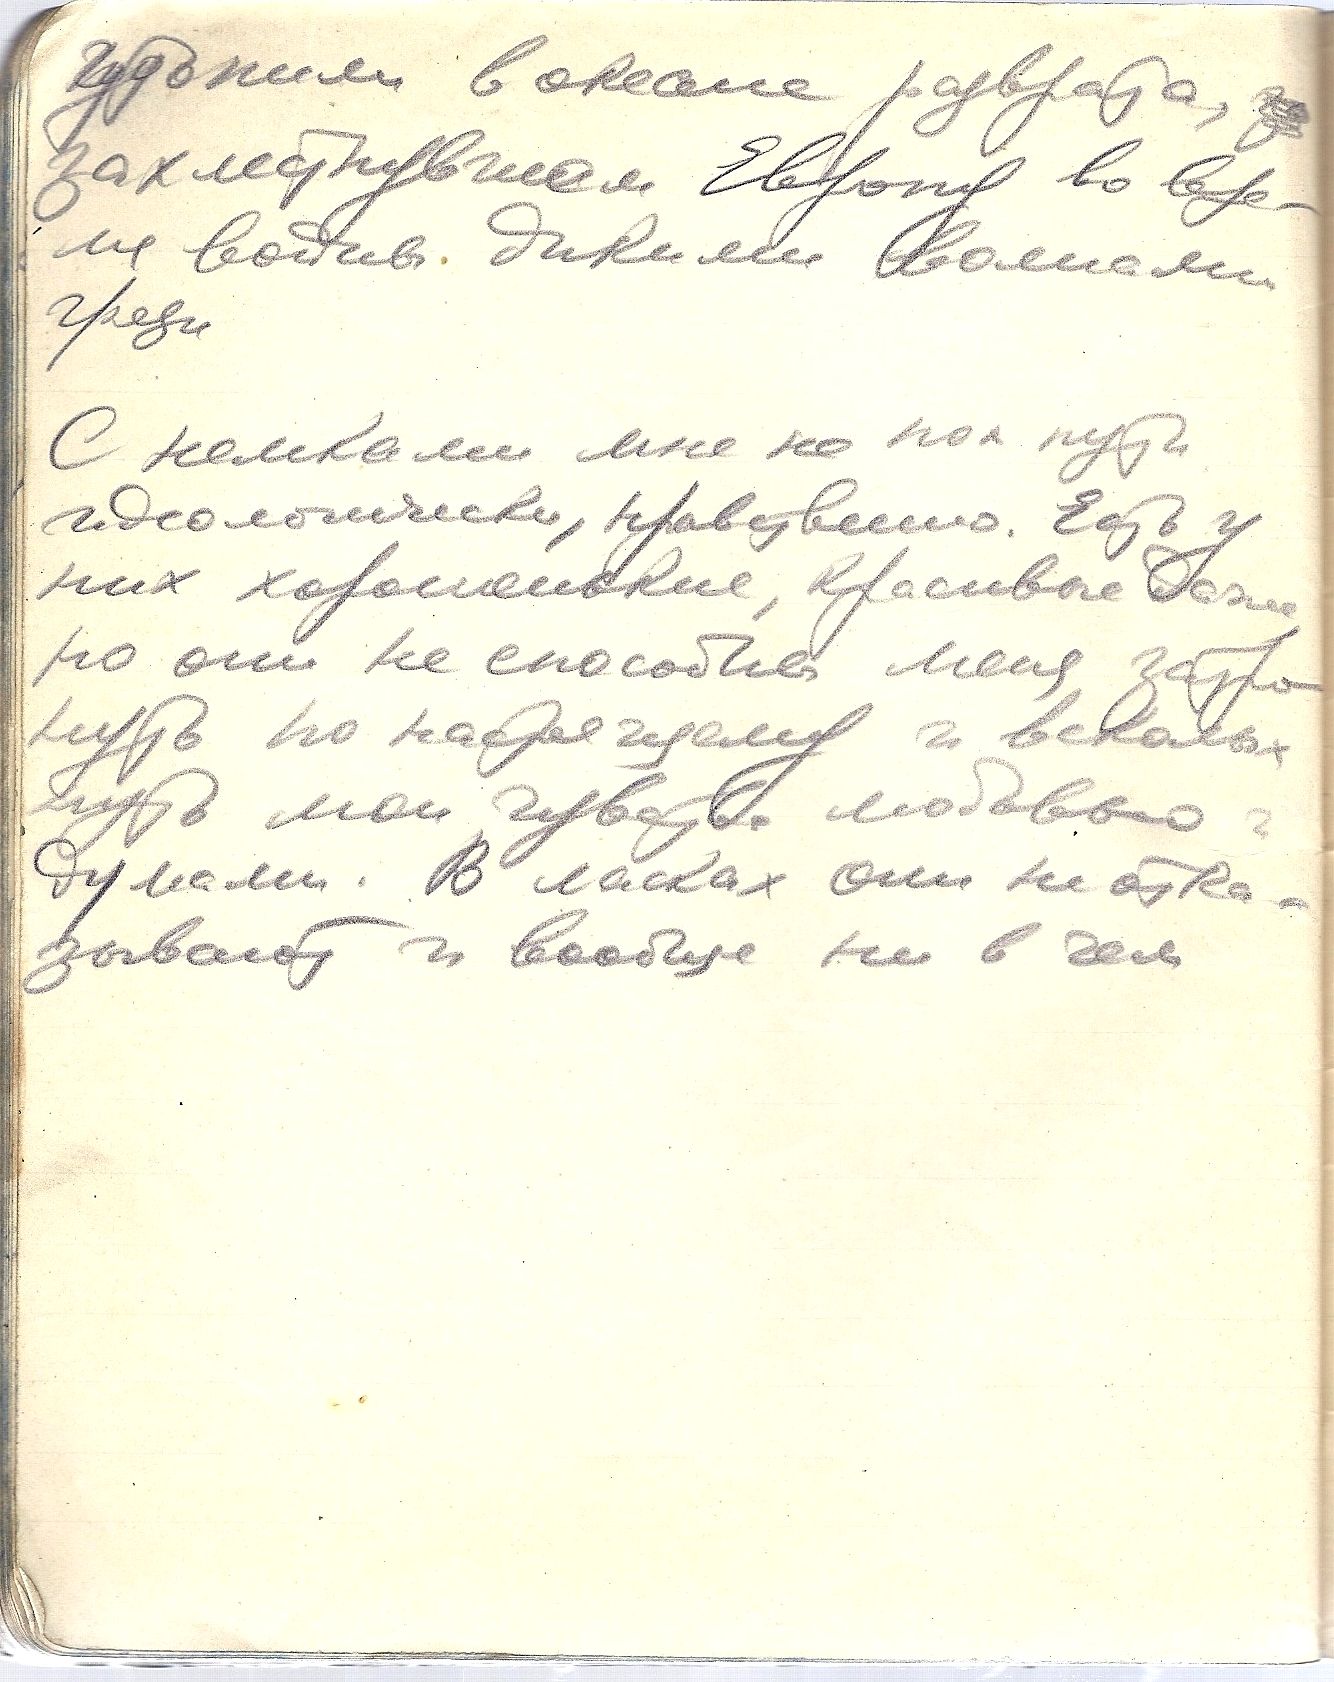 чудьими в океане разврата,
захлестнувшем Европу во вре-
мя войны дикими волнами
грязи
С немками мне не по пути
идеологически, нравственно. Есть у
них хорошенькие, красивые даже
но они не способны меня затро-
нуть по настоящему и всколых
нуть мои чувства любовью и
думами. В ласках они не отка-
зывают и вообще ни в чем